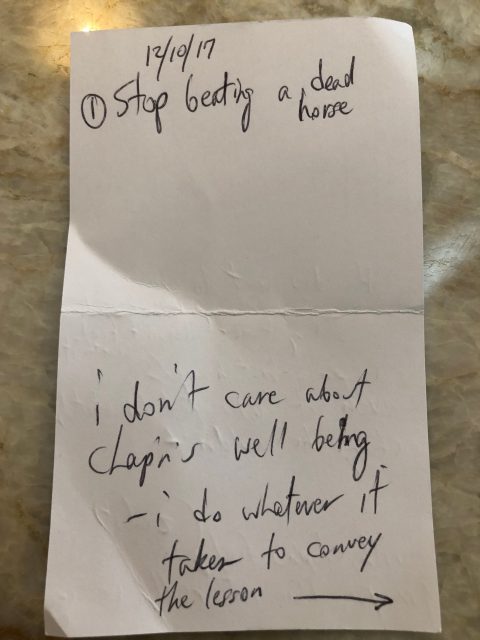 12/10/17
① Stop beating a dead
horse
i don't care about
Chapin's well being
- i do whatever it
takes to convey
the lesson →